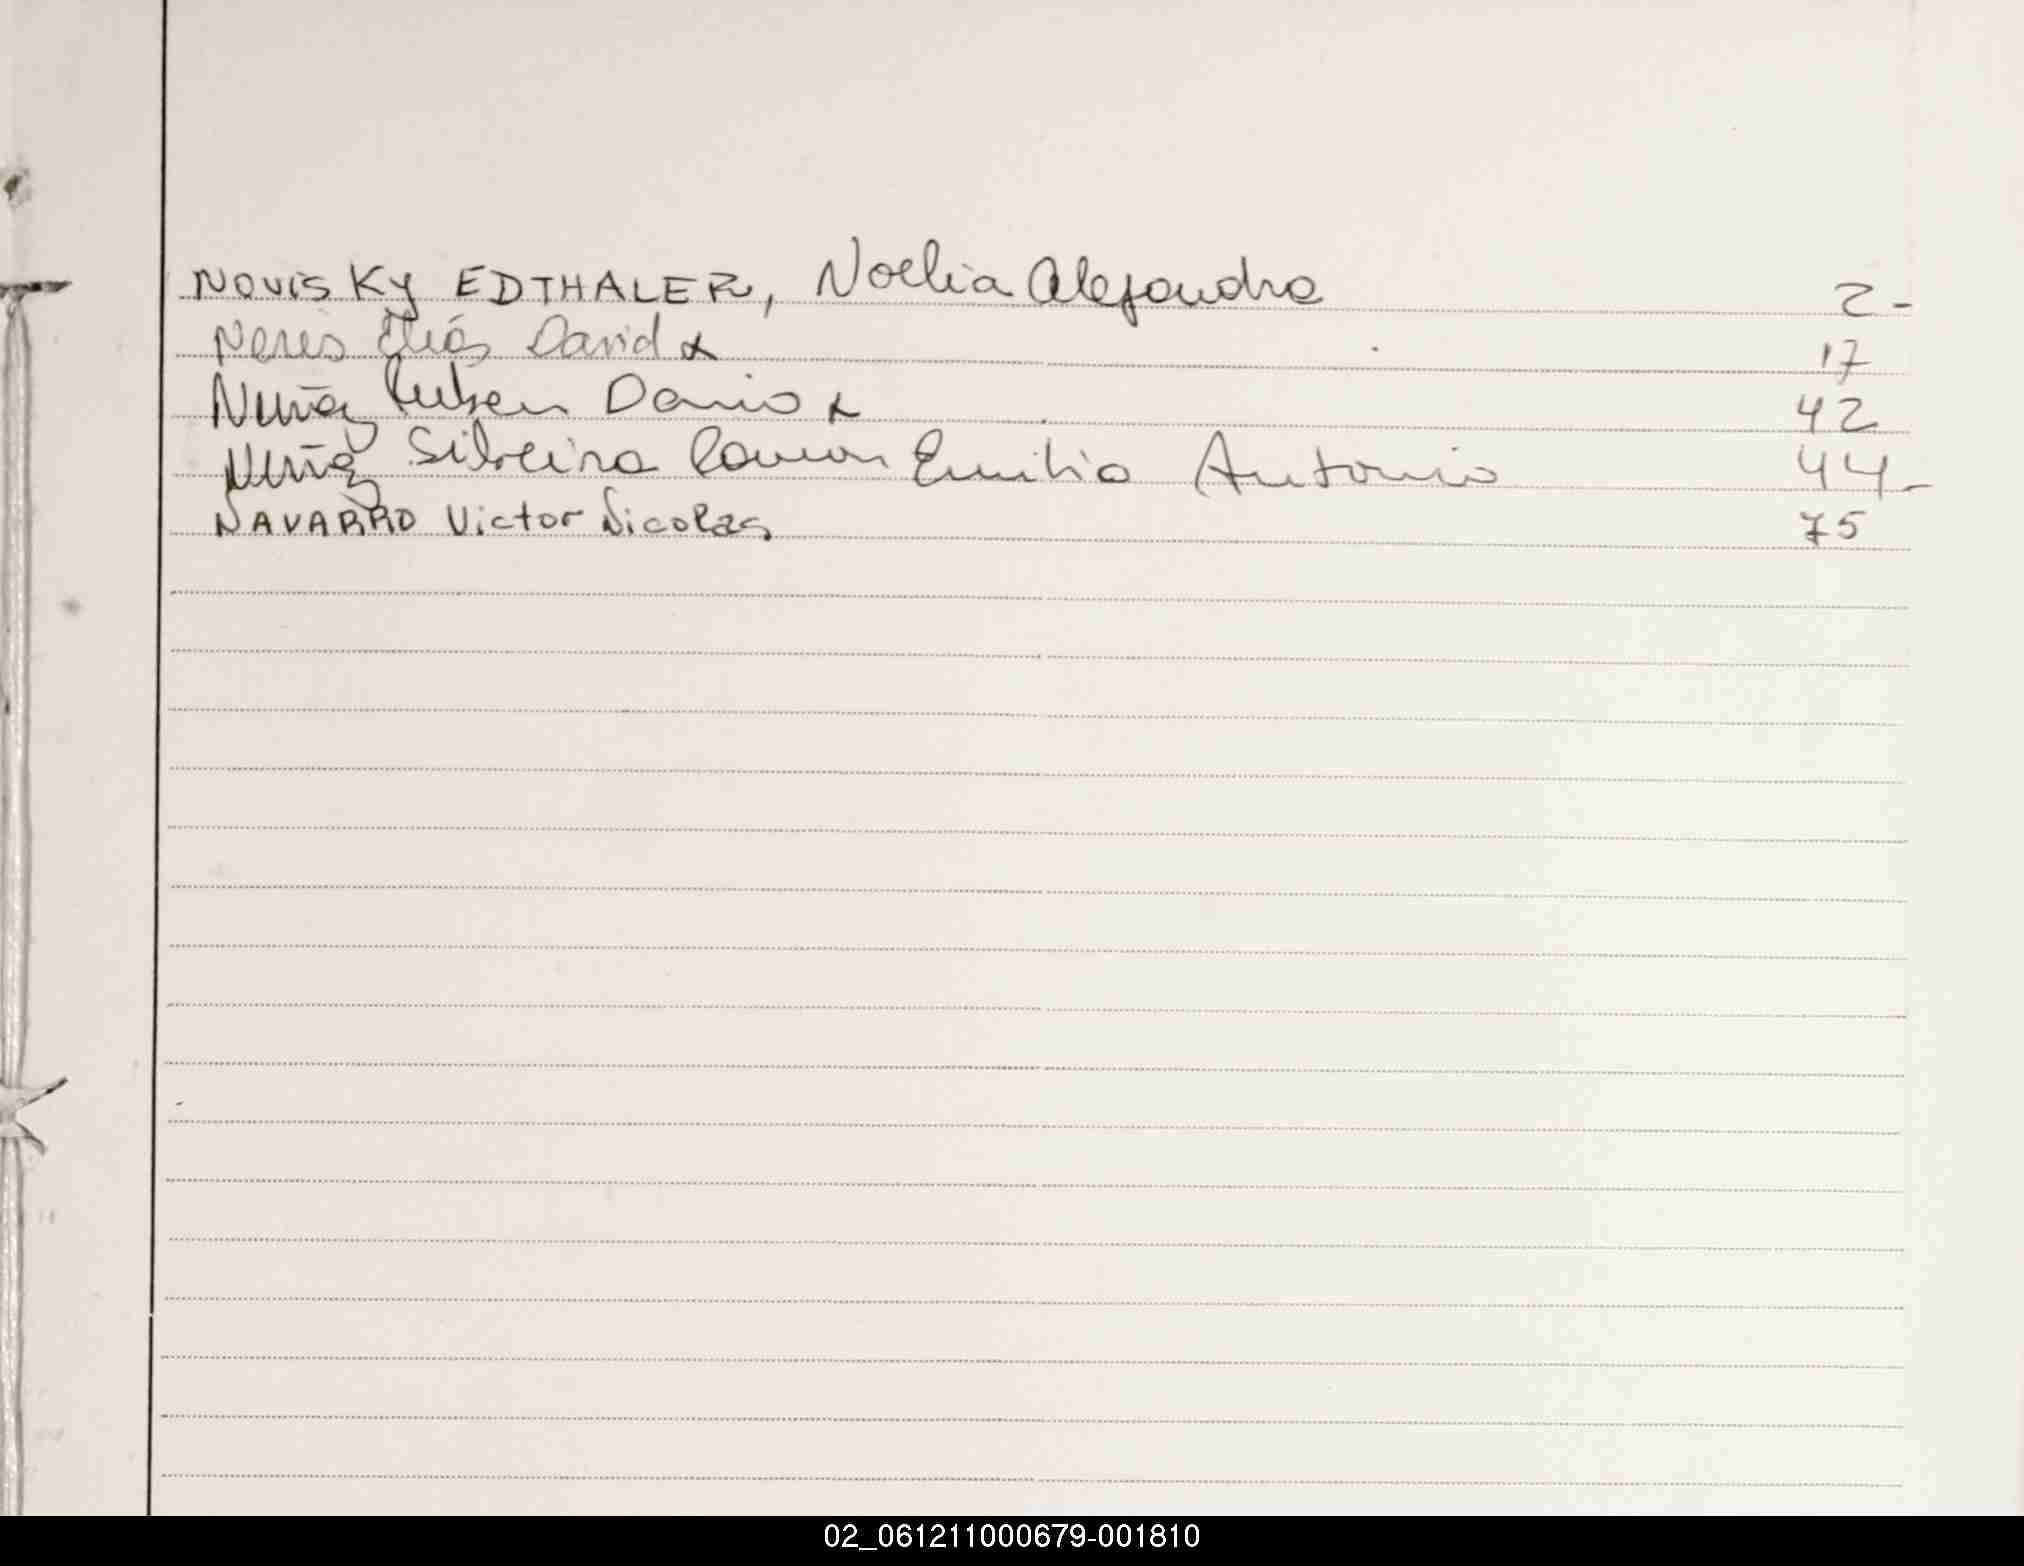 NOVISKY EDTHALER, Noelia Alejandra 2-
Neris Elias David x 17
Nuñez Ruben Dario x 42
Nuñez Silveira Ramon Emilio Antonio 44-
NAVARRO Victor Nicolas. 75
02_061211000679-001810